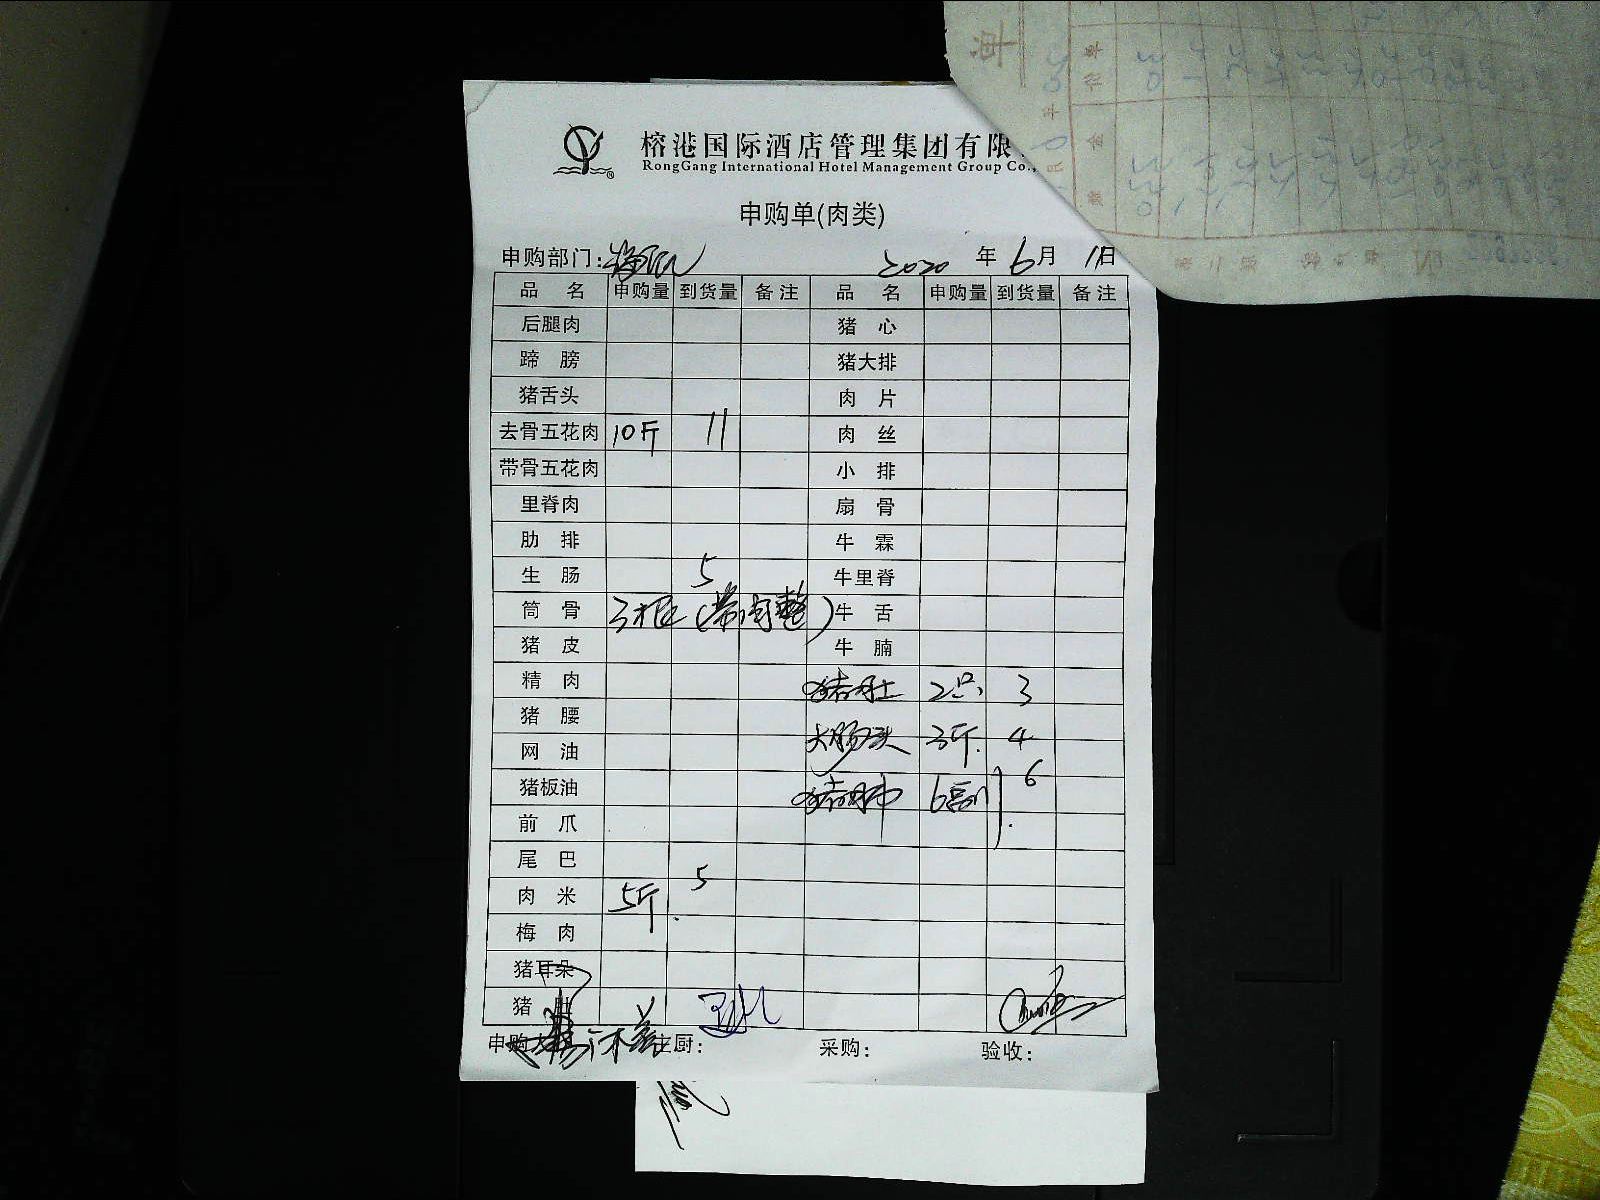 榕港国际酒店管理集团有限
RongGang International Hotel Management Group Co.,
申购单(肉类)
申购部门: 2020 年 6月 11日
品 名 申购量 到货量 备注 品 名 申购量 到货量 备注
后腿肉 猪 心
蹄 膀 猪大排
猪舌头 肉 片
去骨五花肉 10斤 11 肉 丝
带骨五花肉 小 排
里脊肉 扇 骨
肋 排 牛 霖
生 肠 5 牛里脊
筒 骨 3根(带肉整) 牛 舌
猪 皮 牛 腩
精 肉 猪肚 2只 3
猪 腰
网 油 大肠头 3斤. 4
猪板油 猪肺 6副 6
前 爪
尾 巴
肉 米 5斤. 5
梅 肉
猪耳朵
猪 肚
申购 主厨: 采购: 验收: